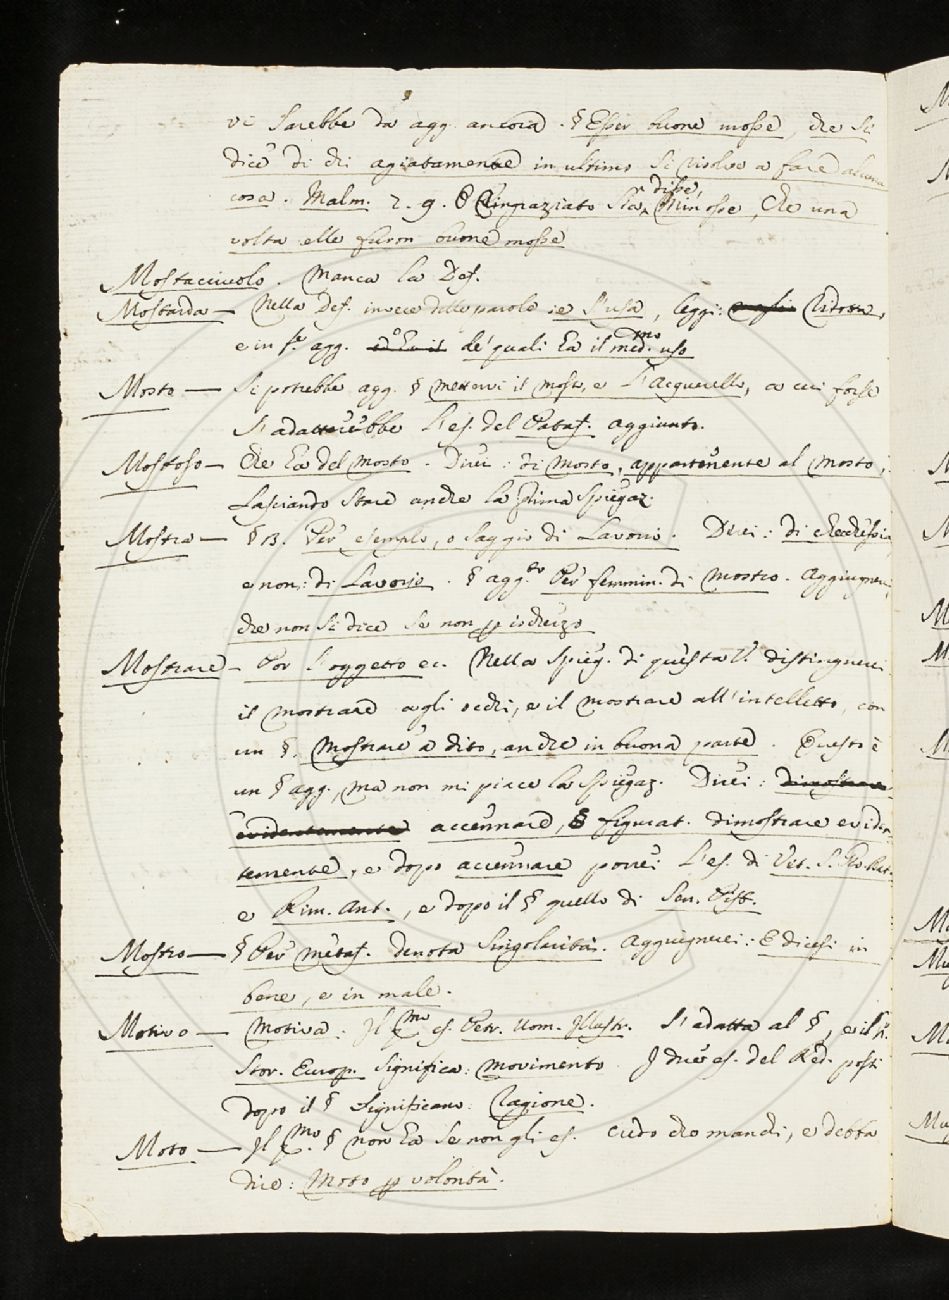 vi sarebbe da agg. ancora. § Esser buone mosse, che si
dice di chi agiatamente in ultimo si risolve a fare alcuna
cosa. Malm. 2. 9. Ringraziato sia, disse, Minosse, Che una
volta elle furon buone mosse
Mostacciuolo. Manca la Def.
Mostarda — Nella Def. invece delle parole si usa, leggi:
e in f.e agg. de' quali ha il med.mo uso
Mosto — Si potrebbe agg. § mettervi il mosto, e l'acquerello, a cui forse
s'adatterebbe l'es. del Pataf. aggiunto.
Mostoso — Che ha del mosto. Direi: di mosto, appartenente al mosto,
lasciando stare anche la prima spiegaz.
Mostra — § 13. Per esempio, o saggio di lavorio. Direi: di checchessia
e non: di lavorio. § agg.to Per femmin. di Mostro. Aggiugnerei
che non si dice se non p ischerzo
Mostrare — Por l'oggetto ec. Nella spieg. di questa V. distinguerei
il mostrare agli occhi, e il mostrare all'intelletto, con
un §. Mostrare a dito, anche in buona parte. Questo è
un § agg., ma non mi piace la spiegaz. Direi: dimostrare
evidentemente accennare, § figurat. dimostrare eviden-
temente, e dopo accennare porrei l'es. di Vet. S. Pad.
e Rim. Ant., e dopo il § quello di Sen. Pist.
Mostro — § Per metaf. denota singolarità. Aggiugnerei: E dicesi in
bene, e in male.
Motivo — Motiva. Il p.mo es. Petr. Uom. Illustr. s'adatta al §, e il f.
Stor. Europ. significa: movimento. I due es. del Red. posti
dopo il § significano: Ragione.
Moto — Il p.mo § non ha se non gli es. credo che manchi, e debba
dire: Moto p volontà.